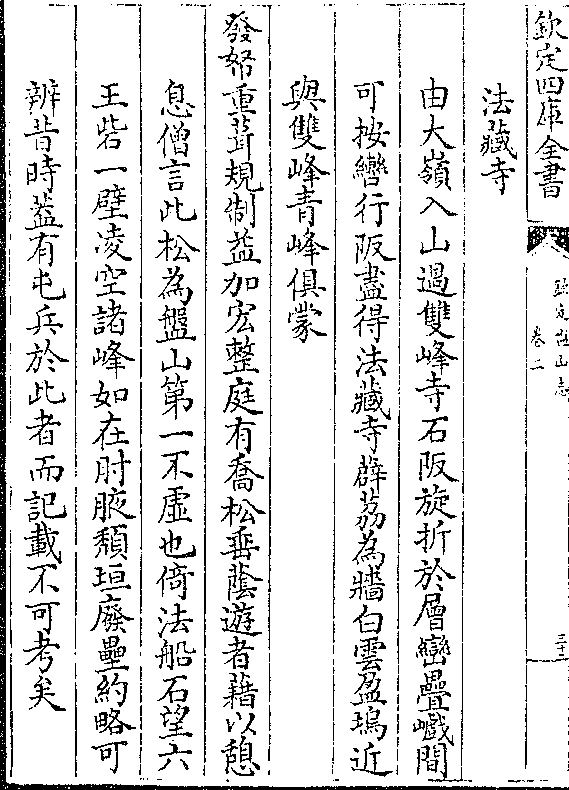 欽定四庫全書
欽定盤山志
卷二
三十二
法藏寺
由大嶺入山過雙峰寺石阪旋折於層巒疊巘間
可按轡行阪盡得法藏寺薜荔為牆白雲盈塢近
與雙峰青峰俱蒙
發帑重葺規制益加宏整庭有喬松垂蔭遊者藉以憩
息僧言此松為盤山第一不虛也倚法船石望六
王砦一壁凌空諸峰如在肘腋頽垣廢壘約略可
辨昔時蓋有屯兵於此者而記載不可考矣